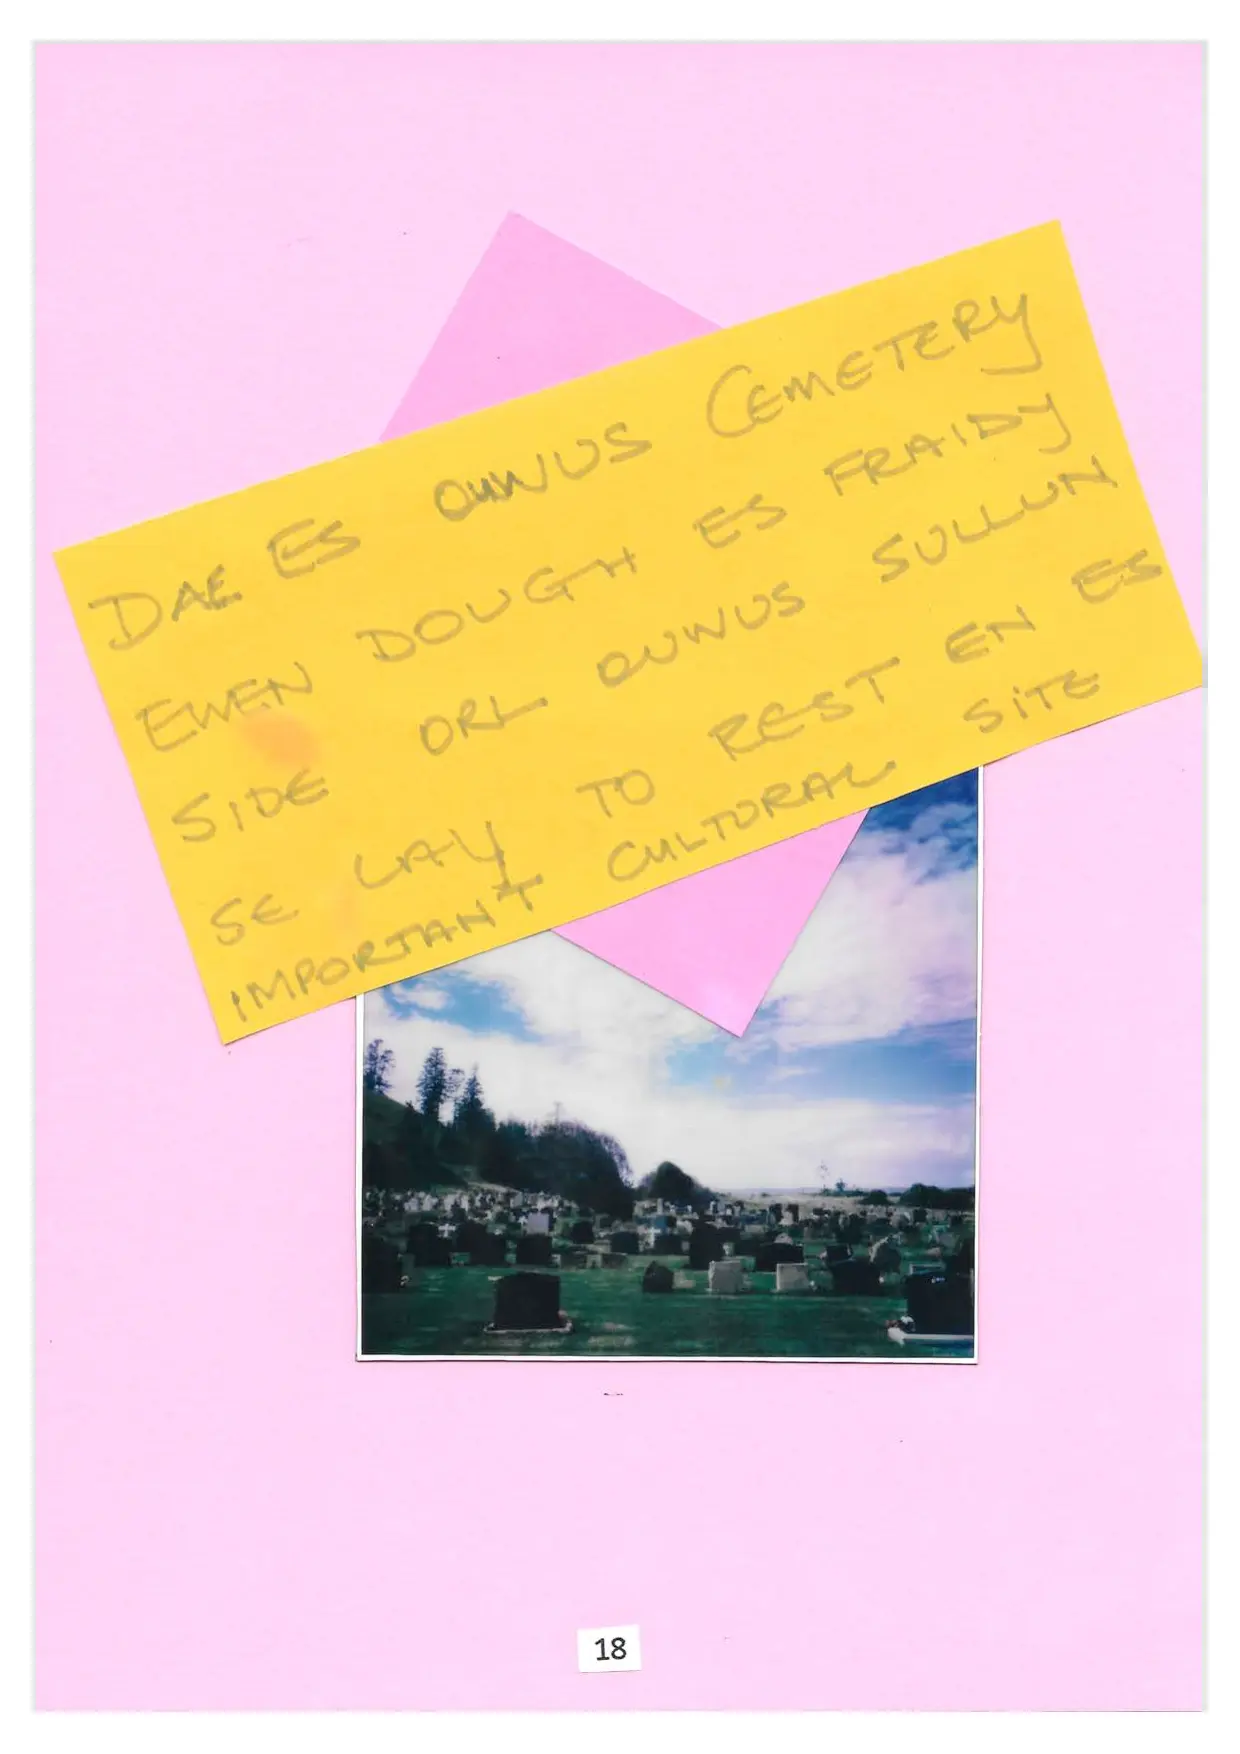 DAE ES OUWUS CEMETERY
EWEN DOUGH ES FRAIDY
SIDE ORL OUWUS SULLUN
SE LAY TO REST EN ES
IMPORTANT CULTORAL SITE
18